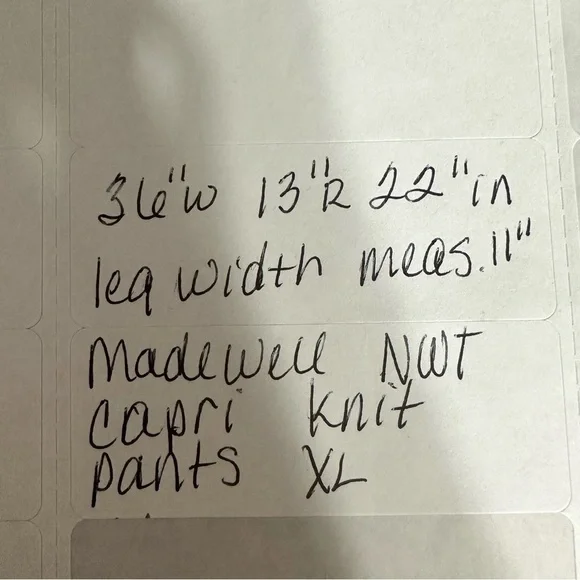 36"W 13"R 22"in
leg width meas. 11"
Madewell NWT
capri knit
pants XL